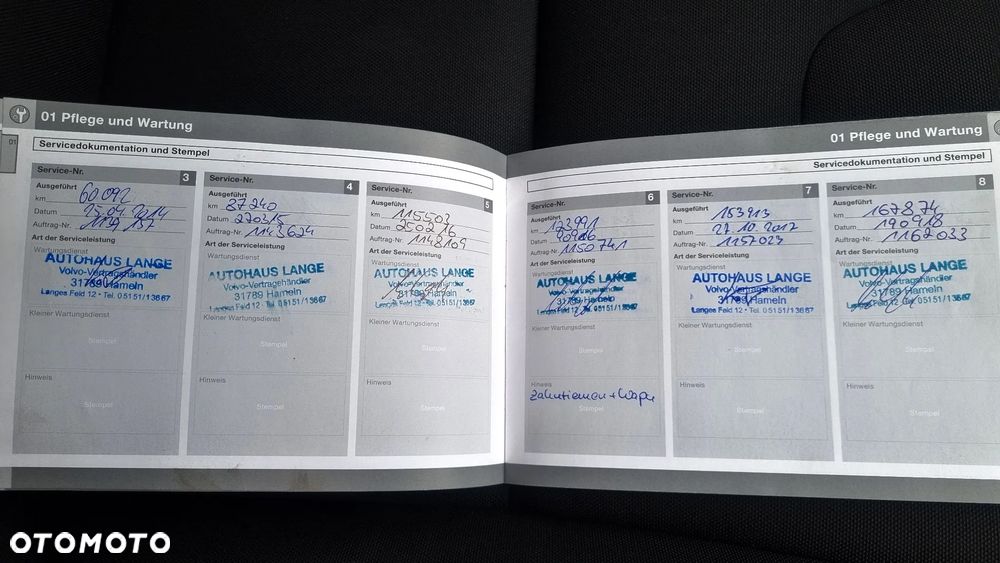 01 Pflege und Wartung
01
Servicedokumentation und Stempel
Service-Nr. 3
Ausgeführt
km 60092
Datum 25.04.2014
Auftrag-Nr. 1139 157
Art der Serviceleistung
Wartungsdienst
AUTOHAUS LANGE
Volvo-Vertragshändler
31789 Hameln
Langes Feld 12 • Tel. 05151/13667
Kleiner Wartungsdienst
Stempel
Hinweis
Stempel
Service-Nr. 4
Ausgeführt
km 87240
Datum 270315
Auftrag-Nr. 1143624
Art der Serviceleistung
Wartungsdienst
AUTOHAUS LANGE
Volvo-Vertragshändler
31789 Hameln
Langes Feld 12 • Tel. 05151/13667
Kleiner Wartungsdienst
Stempel
Hinweis
Stempel
Service-Nr. 5
Ausgeführt
km 115503
Datum 250216
Auftrag-Nr. 1148109
Art der Serviceleistung
Wartungsdienst
AUTOHAUS LANGE
Volvo-Vertragshändler
31789 Hameln
Langes Feld 12 • Tel. 05151/13667
Kleiner Wartungsdienst
Stempel
Hinweis
Stempel
01 Pflege und Wartung
Servicedokumentation und Stempel
Service-Nr. 6
Ausgeführt
km 123991
Datum
Auftrag-Nr. 1150741
Art der Serviceleistung
Wartungsdienst
AUTOHAUS LANGE
Volvo-Vertragshändler
31789 Hameln
Langes Feld 12 • Tel. 05151/13667
Kleiner Wartungsdienst
Stempel
Hinweis
Zahnriemen + Wapu
Service-Nr. 7
Ausgeführt
km 153913
Datum 27.10.2017
Auftrag-Nr. 1157023
Art der Serviceleistung
Wartungsdienst
AUTOHAUS LANGE
Volvo-Vertragshändler
31789 Hameln
Langes Feld 12 • Tel. 05151/13667
Kleiner Wartungsdienst
Stempel
Hinweis
Stempel
Service-Nr. 8
Ausgeführt
km 167874
Datum 190918
Auftrag-Nr. 1162033
Art der Serviceleistung
Wartungsdienst
AUTOHAUS LANGE
Volvo-Vertragshändler
31789 Hameln
Langes Feld 12 • Tel. 05151/13667
Kleiner Wartungsdienst
Stempel
Hinweis
Stempel
OTOMOTO